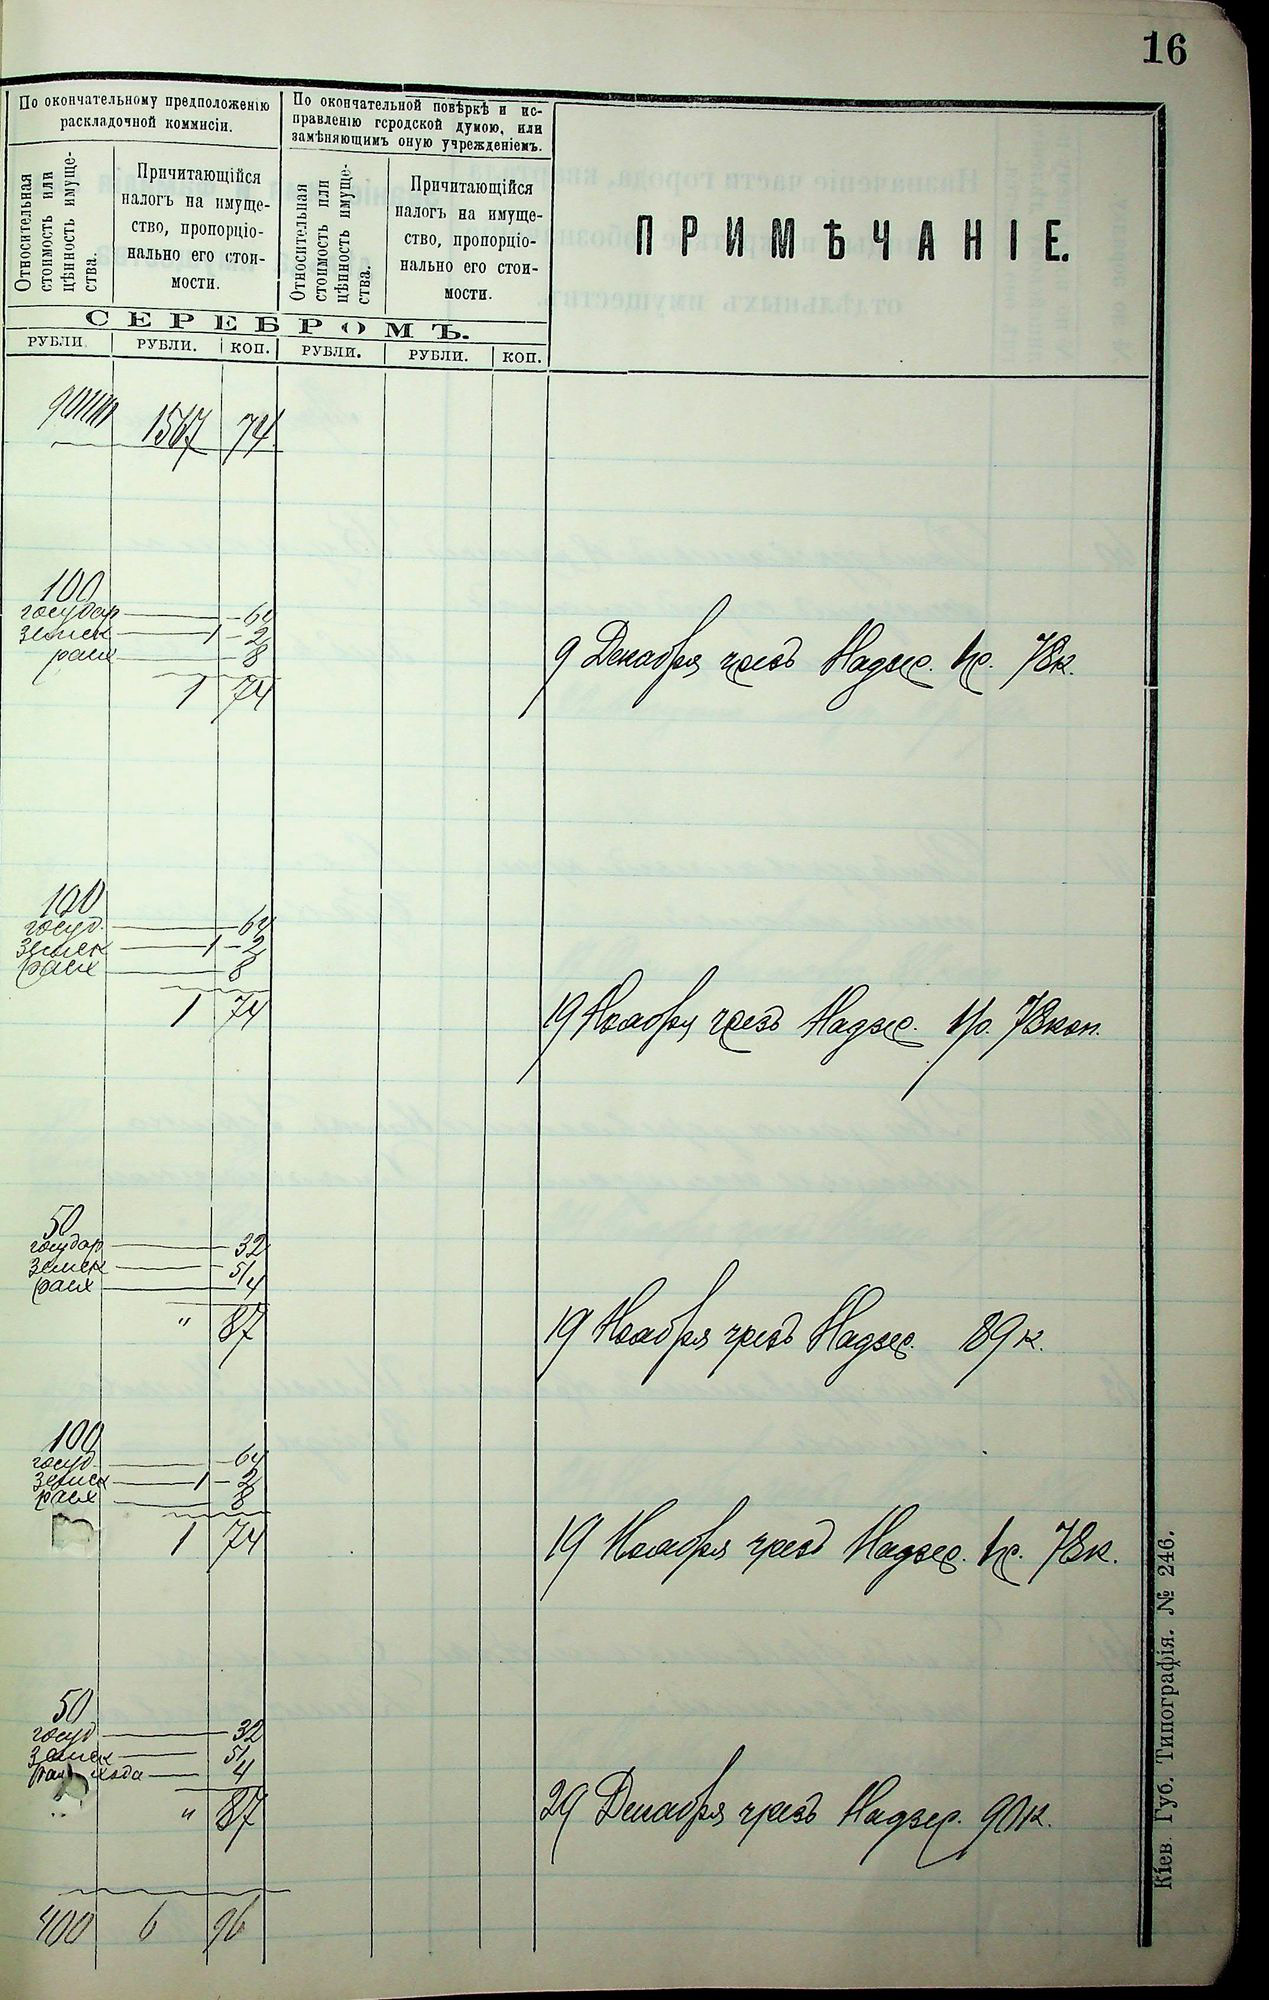 16
По окончательному предположенію
раскладочной коммисіи.
По окончательной повѣркѣ и ис-
правленію городской думою, или
замѣняющимъ оную учрежденіемъ.
Относительная
стоимость или
цѣнность имуще-
ства.
Причитающійся
налогъ на имуще-
ство, пропорціо-
нально его стои-
мости.
Относительная
стоимость или
цѣнность имуще-
ства.
Причитающійся
налогъ на имуще-
ство, пропорціо-
нально его стои-
мости.
ПРИМѢЧАНІЕ.
СЕРЕБРОМЪ.
РУБЛИ. РУБЛИ. КОП. РУБЛИ. РУБЛИ. КОП.
1567 74
100
государ 64
земск 1 2
расх 8
1 74
9 Декабря чрезъ Надзир. 1 р. 78 к.
100
госуд. 64
земск 1 2
расх 8
1 74
19 Ноября чрезъ Надзир. 1 р. 78 коп.
50
государ 32
земск 51
расх 4
" 87
19 Ноября чрезъ Надзир. 89 к.
100
госуд 64
земск 1 2
расх 8
1 74
19 Ноября чрезъ Надзир. 1 р. 78 к.
50
госуд 32
земск 51
расхода 4
" 87
29 Декабря чрезъ Надзир. 90 к.
400 6 96
Кіев. Губ. Типографія. № 246.